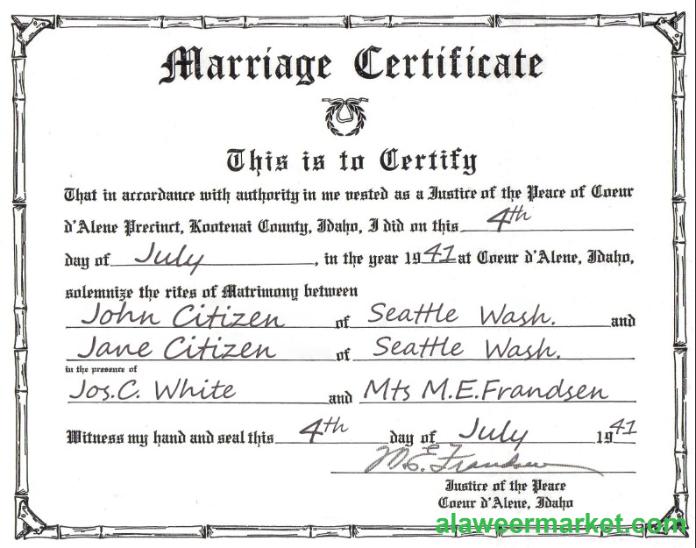 Marriage Certificate
This is to Certify
That in accordance with authority in me vested as a Justice of the Peace of Coeur
d'Alene Precinct, Kootenai County, Idaho, I did on this 4th
day of July, in the year 1941 at Coeur d'Alene, Idaho,
solemnize the rites of Matrimony between
John Citizen of Seattle Wash. and
Jane Citizen of Seattle Wash.
in the presence of
Jos.C. White and Mts M.E.Frandsen
Witness my hand and seal this 4th day of July 1941
M.E. Frandsen
Justice of the Peace
Coeur d'Alene, Idaho
alaweermarket.com